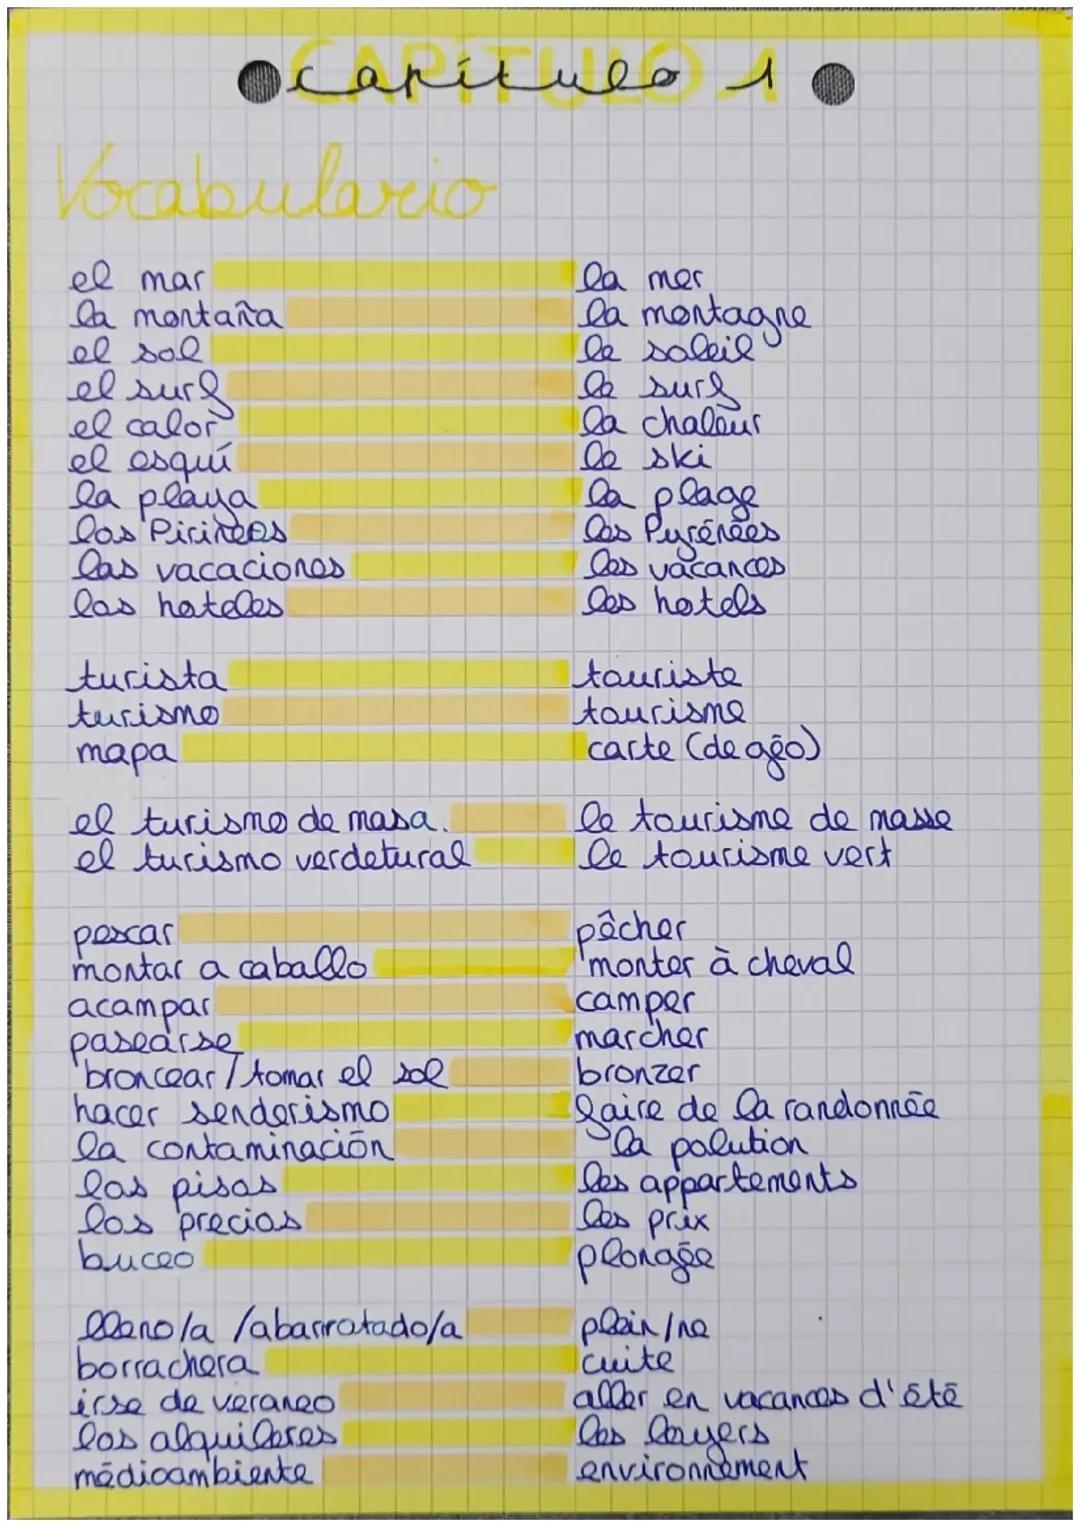 CAPÍTULO 1
capítulo 1
Vocabulario
el mar la mer
la montaña la montagne
el sol le soleil
el surf le surf
el calor la chaleur
el esquí le ski
la playa la plage
los Pirineos les Pyrénées
las vacaciones les vacances
los hoteles les hotels
turista touriste
turismo tourisme
mapa carte (de géo)
el turismo de masa. le tourisme de masse
el turismo verdetural le tourisme vert
pescar pêcher
montar a caballo monter à cheval
acampar camper
pasearse marcher
broncear / tomar el sol bronzer
hacer senderismo faire de la randonnée
la contaminación la polution
los pisos les appartements
los precios les prix
buceo plongée
lleno/a /abarratado/a plein/ne
borrachera cuite
irse de veraneo aller en vacances d'été
los alquileres les loyers
médioambiente environnement